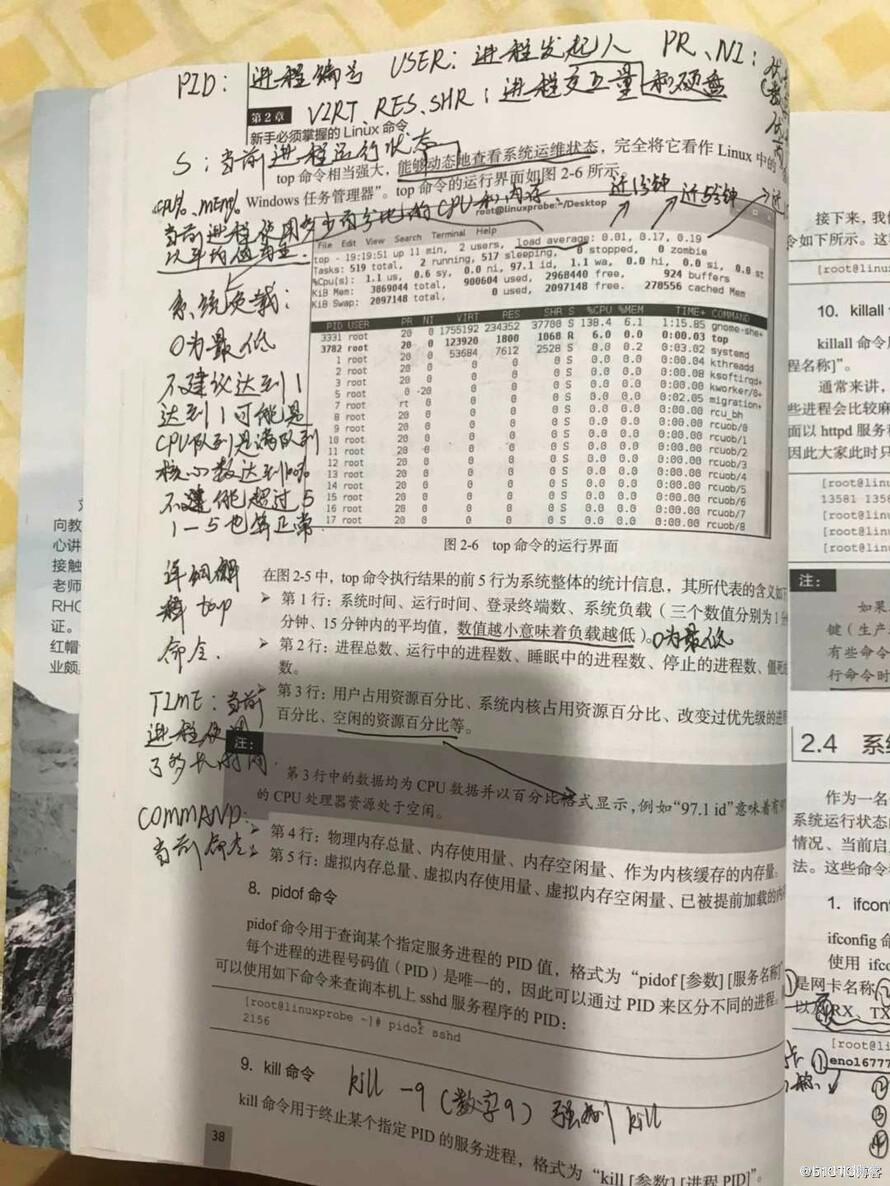 PID: 进程编号 USER: 进程发起人 PR、NI:
第2章 VIRT、RES、SHR: 进程交互量和硬盘
新手必须掌握的 Linux 命令
S: 当前进程运行状态
top 命令相当强大，能够动态地查看系统运维状态，完全将它看作 Linux 中的
Windows 任务管理器”。top 命令的运行界面如图 2-6 所示。
CPU%、MEM%
当前进程使用多少百分比的CPU和内存
以平均值为主
近1分钟 近5分钟
root@linuxprobe:~/Desktop
File Edit View Search Terminal Help
top - 19:19:51 up 11 min, 2 users, load average: 0.01, 0.17, 0.19
Tasks: 519 total, 2 running, 517 sleeping, 0 stopped, 0 zombie
%Cpu(s): 1.1 us, 0.6 sy, 0.0 ni, 97.1 id, 1.1 wa, 0.0 hi, 0.0 si, 0.0 st
KiB Mem: 3869044 total, 900604 used, 2968440 free, 924 buffers
KiB Swap: 2097148 total, 0 used, 2097148 free. 270556 cached Mem
PID USER PR NI VIRT RES SHR S %CPU %MEM TIME+ COMMAND
3331 root 20 0 1755192 234352 37700 S 138.4 6.1 1:15.85 gnome-she+
3782 root 20 0 123920 1800 1068 R 6.0 0.0 0:00.03 top
1 root 20 0 53684 7612 2528 S 0.0 0.2 0:03.02 systemd
2 root 20 0 0 0 0 S 0.0 0.0 0:00.04 kthreadd
3 root 20 0 0 0 0 S 0.0 0.0 0:00.08 ksoftirqd+
5 root 0 -20 0 0 0 S 0.0 0.0 0:00.00 kworker/0+
7 root rt 0 0 0 0 S 0.0 0.0 0:02.05 migration+
8 root 20 0 0 0 0 S 0.0 0.0 0:00.00 rcu_bh
9 root 20 0 0 0 0 S 0.0 0.0 0:00.00 rcuob/0
10 root 20 0 0 0 0 S 0.0 0.0 0:00.00 rcuob/1
11 root 20 0 0 0 0 S 0.0 0.0 0:00.00 rcuob/2
12 root 20 0 0 0 0 S 0.0 0.0 0:00.00 rcuob/3
13 root 20 0 0 0 0 S 0.0 0.0 0:00.00 rcuob/4
14 root 20 0 0 0 0 S 0.0 0.0 0:00.00 rcuob/5
15 root 20 0 0 0 0 S 0.0 0.0 0:00.00 rcuob/6
16 root 20 0 0 0 0 S 0.0 0.0 0:00.00 rcuob/7
17 root 20 0 0 0 0 S 0.0 0.0 0:00.00 rcuob/8
系统负载:
0为最低
不建议达到1
达到1可能是
CPU队列是满队列
核心数达到100%
不建能超过5
1—5也算正常
图 2-6 top 命令的运行界面
详细解
释 top
命令.
在图 2-5 中，top 命令执行结果的前 5 行为系统整体的统计信息，其所代表的含义如下
➢ 第 1 行：系统时间、运行时间、登录终端数、系统负载（三个数值分别为 1 分
分钟、15 分钟内的平均值，数值越小意味着负载越低）。0为最低
➢ 第 2 行：进程总数、运行中的进程数、睡眠中的进程数、停止的进程数、僵死
数。
第 3 行：用户占用资源百分比、系统内核占用资源百分比、改变过优先级的进程
百分比、空闲的资源百分比等。
TIME: 当前
进程使用
了多长时间
注：
第 3 行中的数据均为 CPU 数据并以百分比格式显示，例如“97.1 id”意味着有
的 CPU 处理器资源处于空闲。
COMMAND:
当前命令
➢ 第 4 行：物理内存总量、内存使用量、内存空闲量、作为内核缓存的内存量。
➢ 第 5 行：虚拟内存总量、虚拟内存使用量、虚拟内存空闲量、已被提前加载的内
8. pidof 命令
pidof 命令用于查询某个指定服务进程的 PID 值，格式为“pidof [参数] [服务名称]”
每个进程的进程号码值（PID）是唯一的，因此可以通过 PID 来区分不同的进程。
可以使用如下命令来查询本机上 sshd 服务程序的 PID：
[root@linuxprobe ~]# pidof sshd
2156
9. kill 命令 kill -9 (数字9) 强制 kill
kill 命令用于终止某个指定 PID 的服务进程，格式为“kill [参数] [进程 PID]”。
38
向教
心讲
接触
老师
RHC
证。
红帽
业颇
接下来，我
令如下所示。这
[root@linu
10. killall
killall 命令用
程名称]”。
通常来讲，
些进程会比较麻
面以 httpd 服务程
因此大家此时只
[root@linu
13581 1358
[root@linu
[root@linu
[root@linu
注：
如果
键（生产
有些命令
行命令时
2.4 系
作为一名
系统运行状态
情况、当前启
法。这些命令
1. ifcon
ifconfig 命
使用 ifco
①是网卡名称②
以及RX、TX
[root@li
①eno16777
②
③
④
@51CTO博客